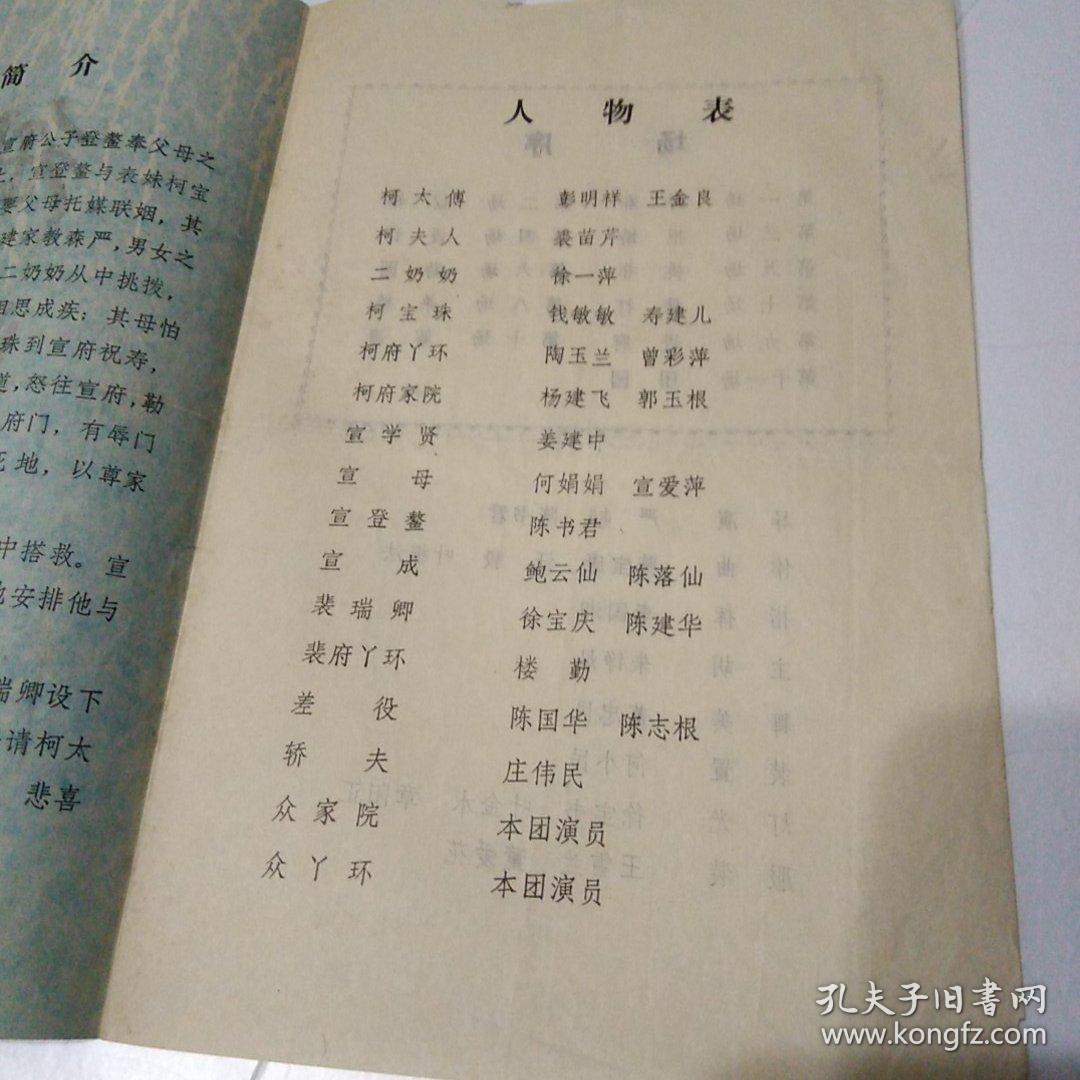 简 介
宣府公子登鳌奉父母之
宣登鳌与表妹柯宝
要父母托媒联姻，其
建家教森严，男女之
二奶奶从中挑拨，
相思成疾；其母怕
珠到宣府祝寿，
道，怒往宣府，勒
府门，有辱门
死地，以尊家
中搭救。宣
地安排他与
瑞卿设下
请柯太
悲喜
人物表
柯太傅 彭明祥 王金良
柯夫人 裘苗芹
二奶奶 徐一萍
柯宝珠 钱敏敏 寿建儿
柯府丫环 陶玉兰 曾彩萍
柯府家院 杨建飞 郭玉根
宣学贤 姜建中
宣母 何娟娟 宣爱萍
宣登鳌 陈书君
宣成 鲍云仙 陈落仙
裴瑞卿 徐宝庆 陈建华
裴府丫环 楼勤
差役 陈国华 陈志根
轿夫 庄伟民
众家院 本团演员
众丫环 本团演员
孔夫子旧书网
www.kongfz.com